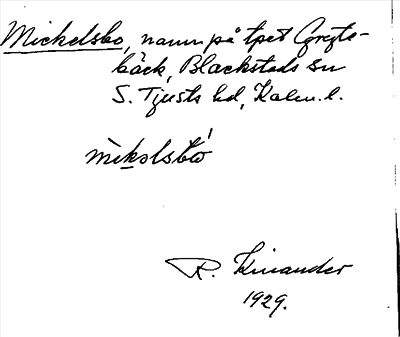 Mickelsbo, namn på tpet Gryte-
bäck, Blackstads sn
S. Tjusts hd, Kalm. l.
mìkəlsbó
R. Kinander
1929.